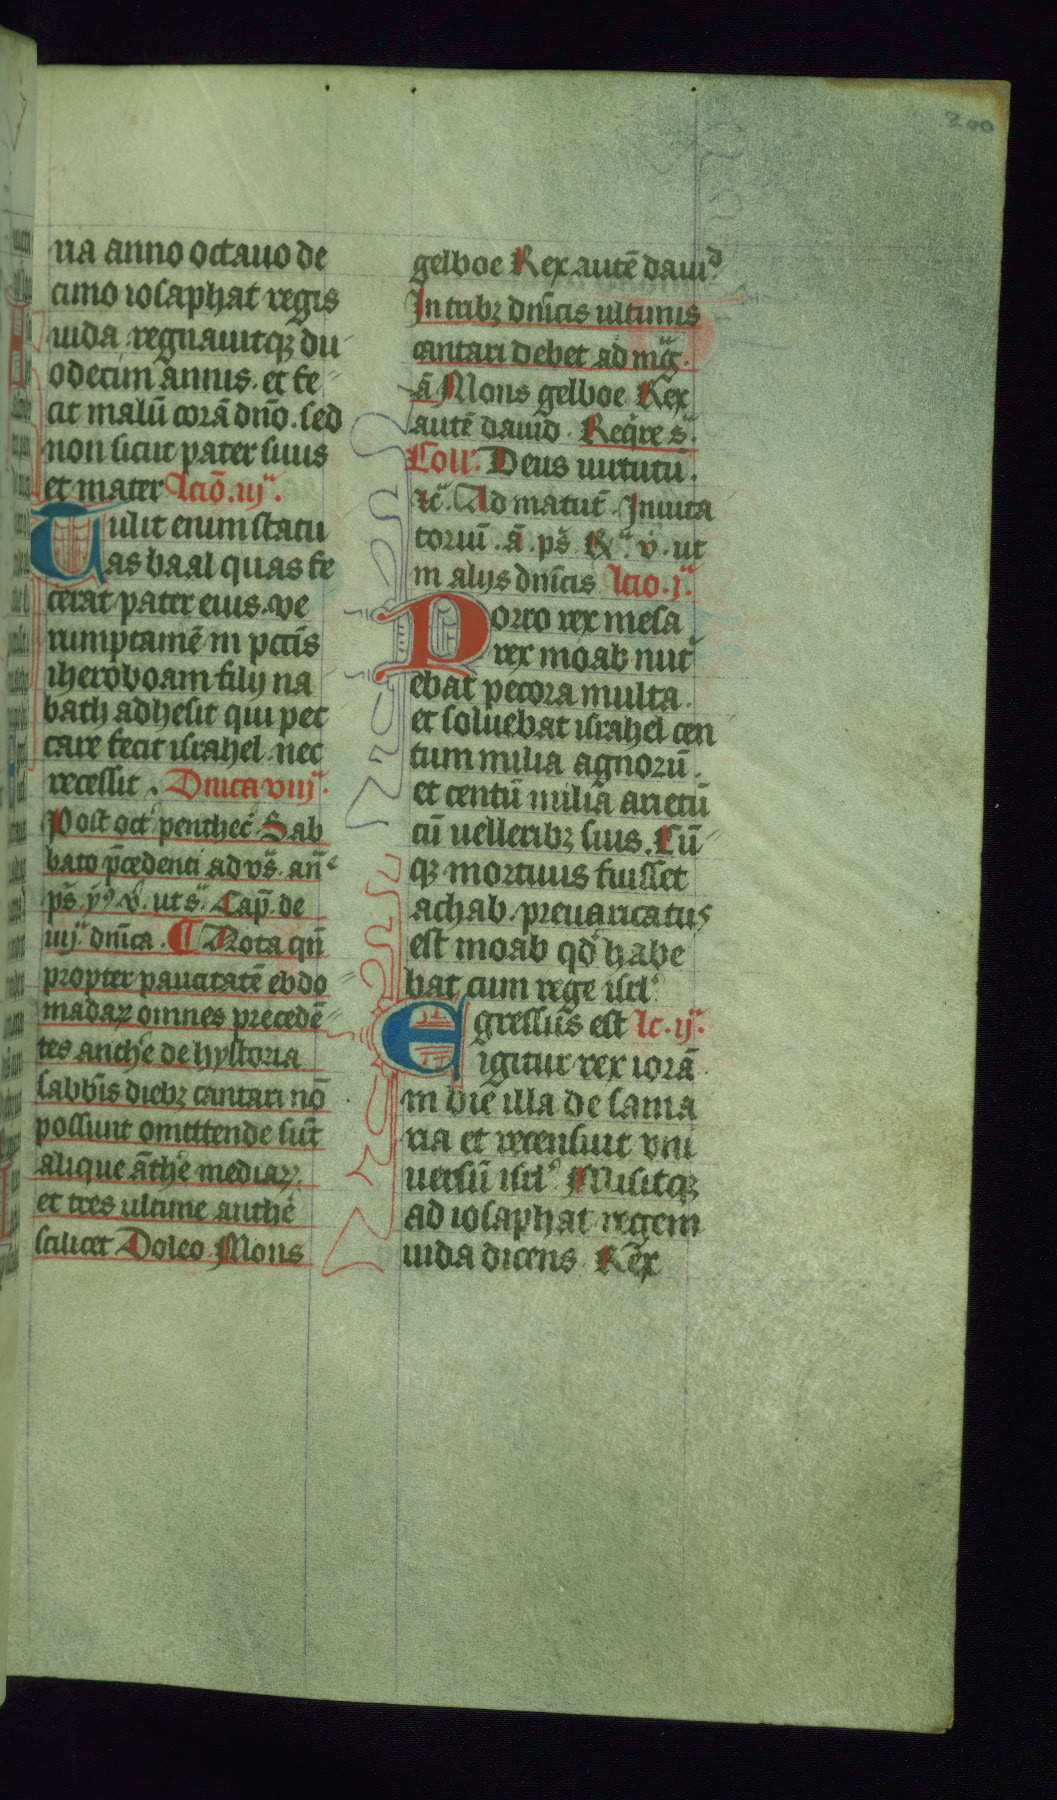 200
ria anno octauo de
cimo iosaphat regis
iuda regnauitqʒ du
odecim annis. et fe
cit malū corā dn̄o. sed
non sicut pater suus
et mater Lcīo. iij.
Tulit enim statu
as baal quas fe
cerat pater eius. ve
rumptamē in pcc̄is
iheroboam filij na
bath adhesit qui pec
care fecit israhel. nec
recessit. Dn̄ica viij.
Post oct penthec̄. Sab
bato p̄cedenti ad vs̄. an̄
ps̄. ẏ. v̄. ut s. Cap̄. de
iiij dn̄ica. ¶ Nota qn̄
propter paucitatē ebdo
madaꝝ omnes precedē
tes anthe de hystoria
sabbīs diebʒ cantari nō
possunt omittende sūt
alique āthe mediaꝝ.
et tres ultime anthe
scilicet Doleo. Mons
gelboe Rex autē dauid.
In tribʒ dn̄icis ultimis
cantari debet ad mḡ.
ā Mons gelboe Rex
autē dauid. Req̇re s̄.
Coll. Deus uirtutū.
ꝛc̄. Ad matut̄. Inuita
toriū. ā. ps̄. ꝶ. v̄. ut
in alijs dn̄icis Lcio. j.
Porro rex mesa
rex moab nut
ebat pecora multa.
et soluebat israhel cen
tum milia agnorū.
et centū milia arietū
cū uelleribʒ suis. Cū
qʒ mortuus fuisset
achab. preuaricatus
est moab qd̄ habe
bat cum rege isrl̄
Egressus est Lc. ij.
igitur rex iorā
in die illa de sama
ria et recensuit vni
uersū isrl̄ Misitqʒ
ad iosaphat regem
iuda dicens Rex